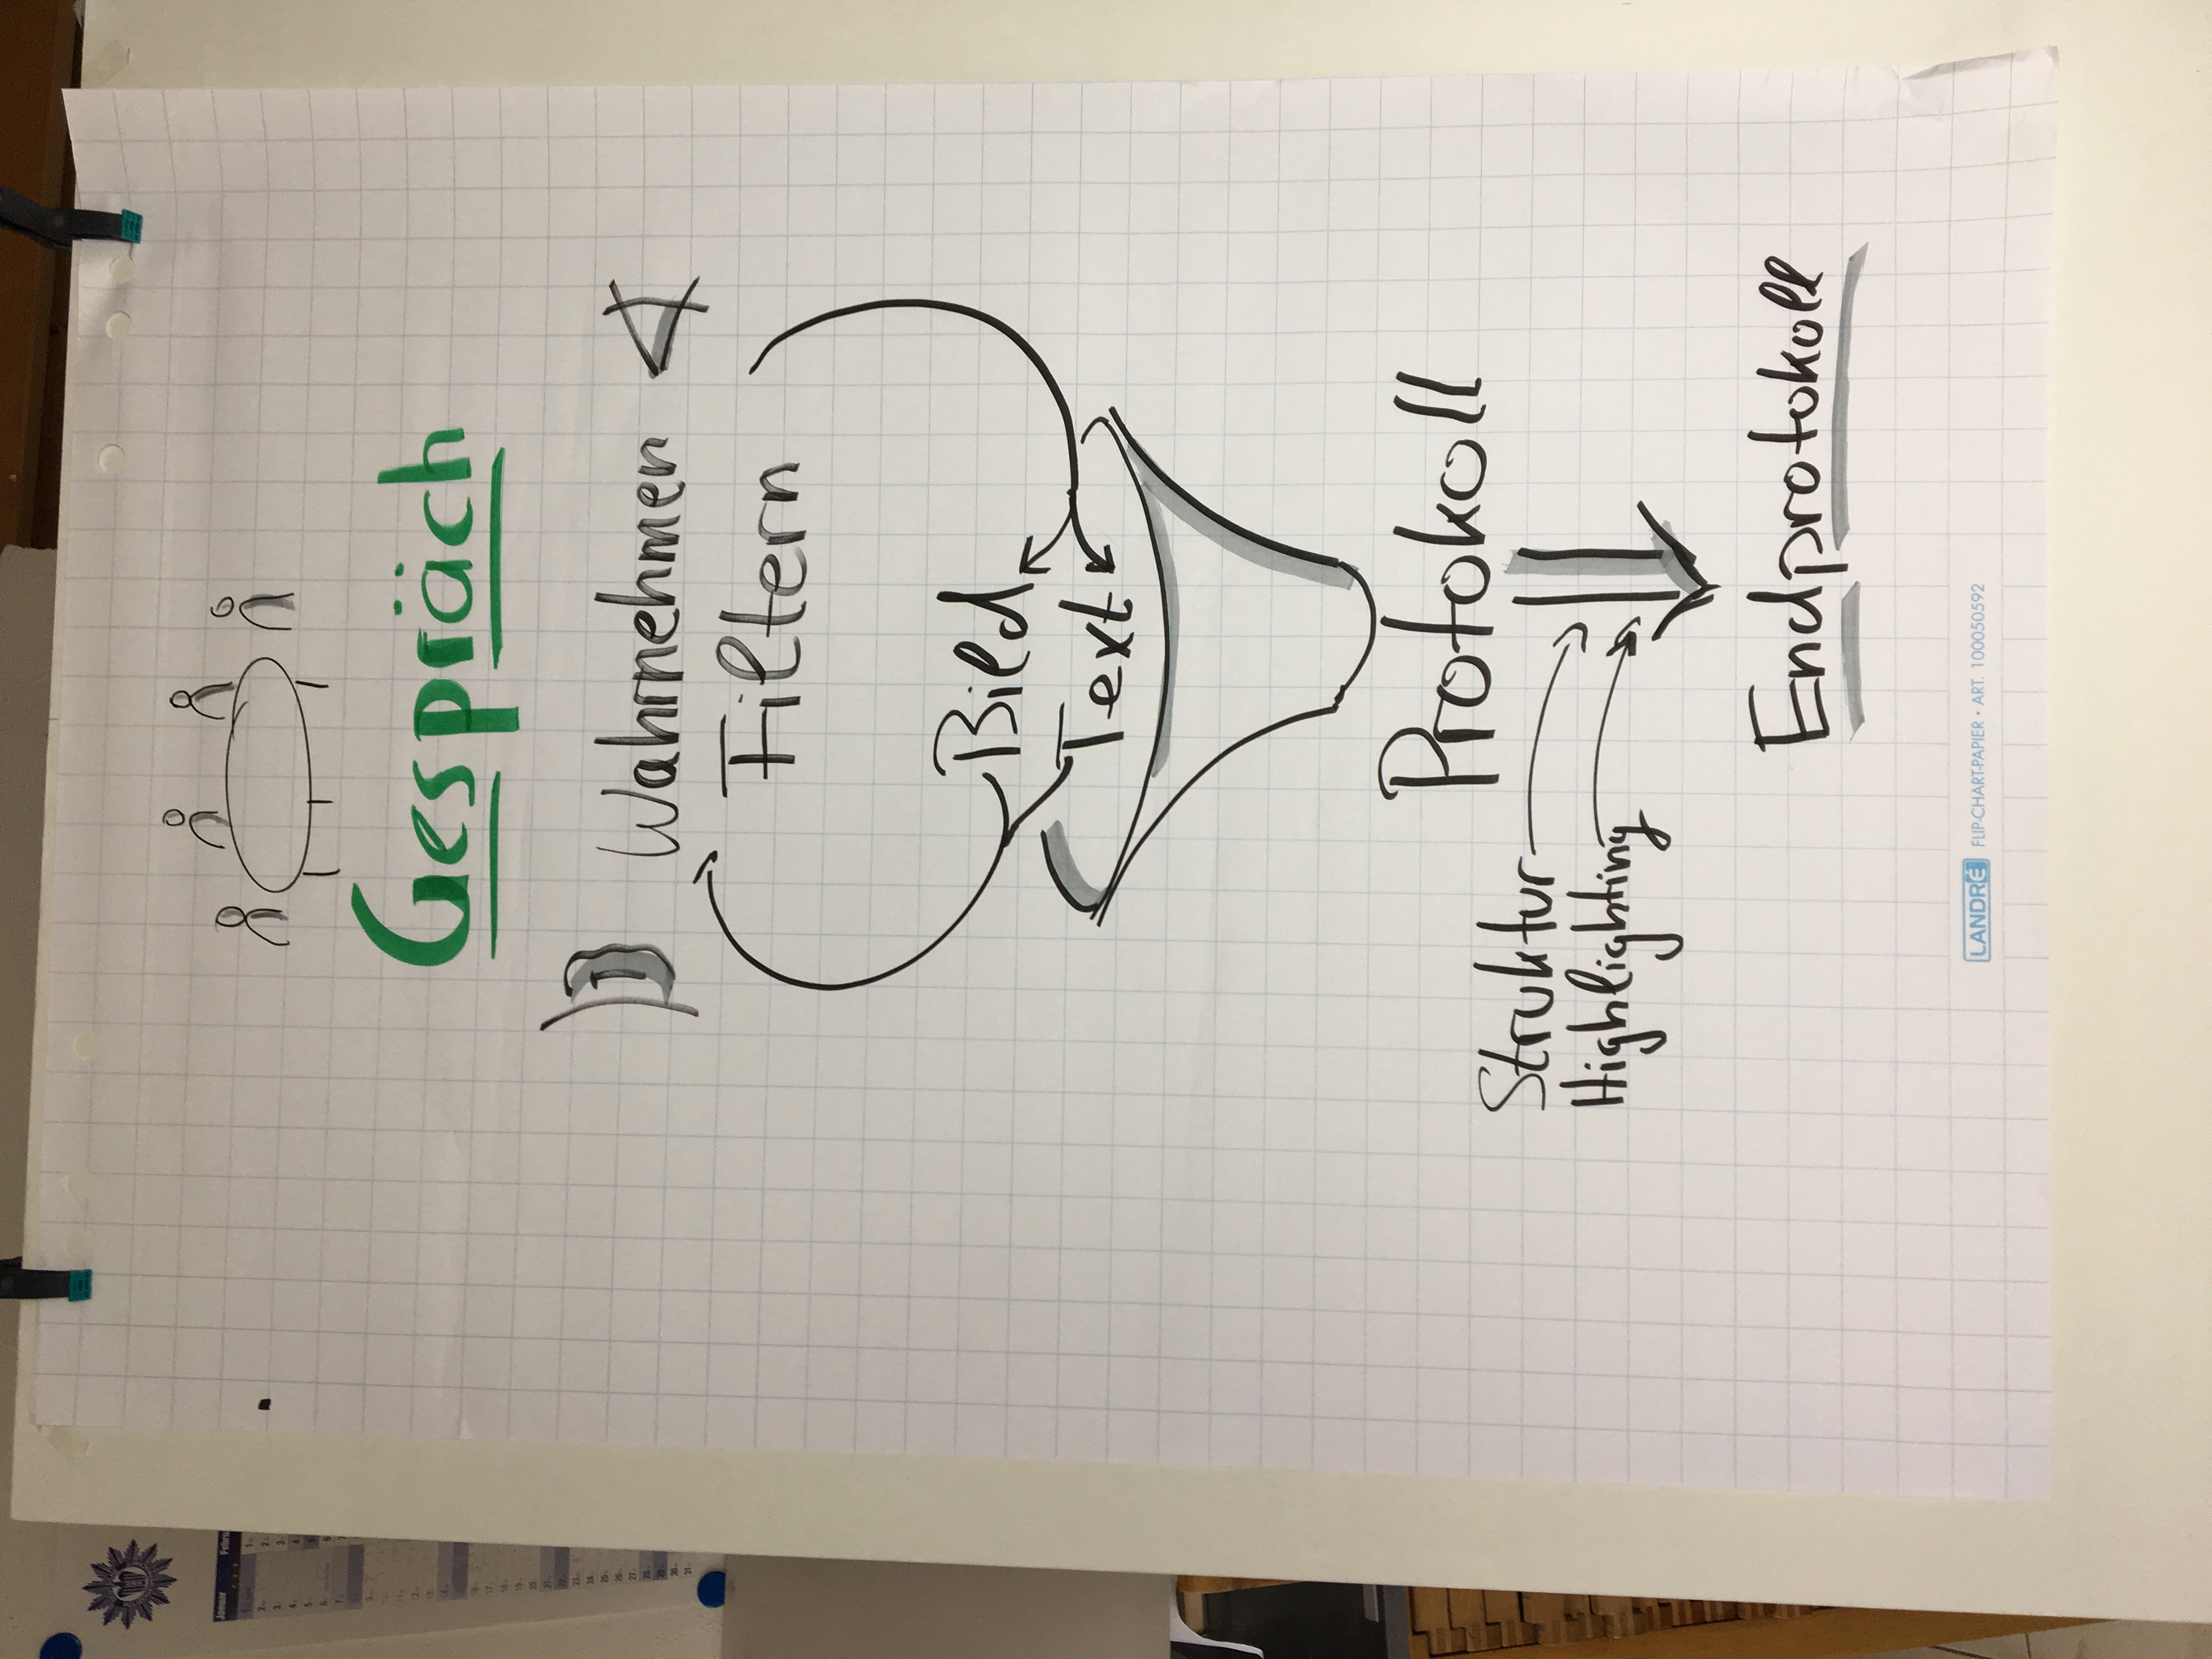 Gespräch
Wahrnehmen
Filtern
Bild
Text
Protokoll
Struktur
Highlighting
Endprotokoll
LANDRÉ FLIP-CHART-PAPIER • ART. 100050592